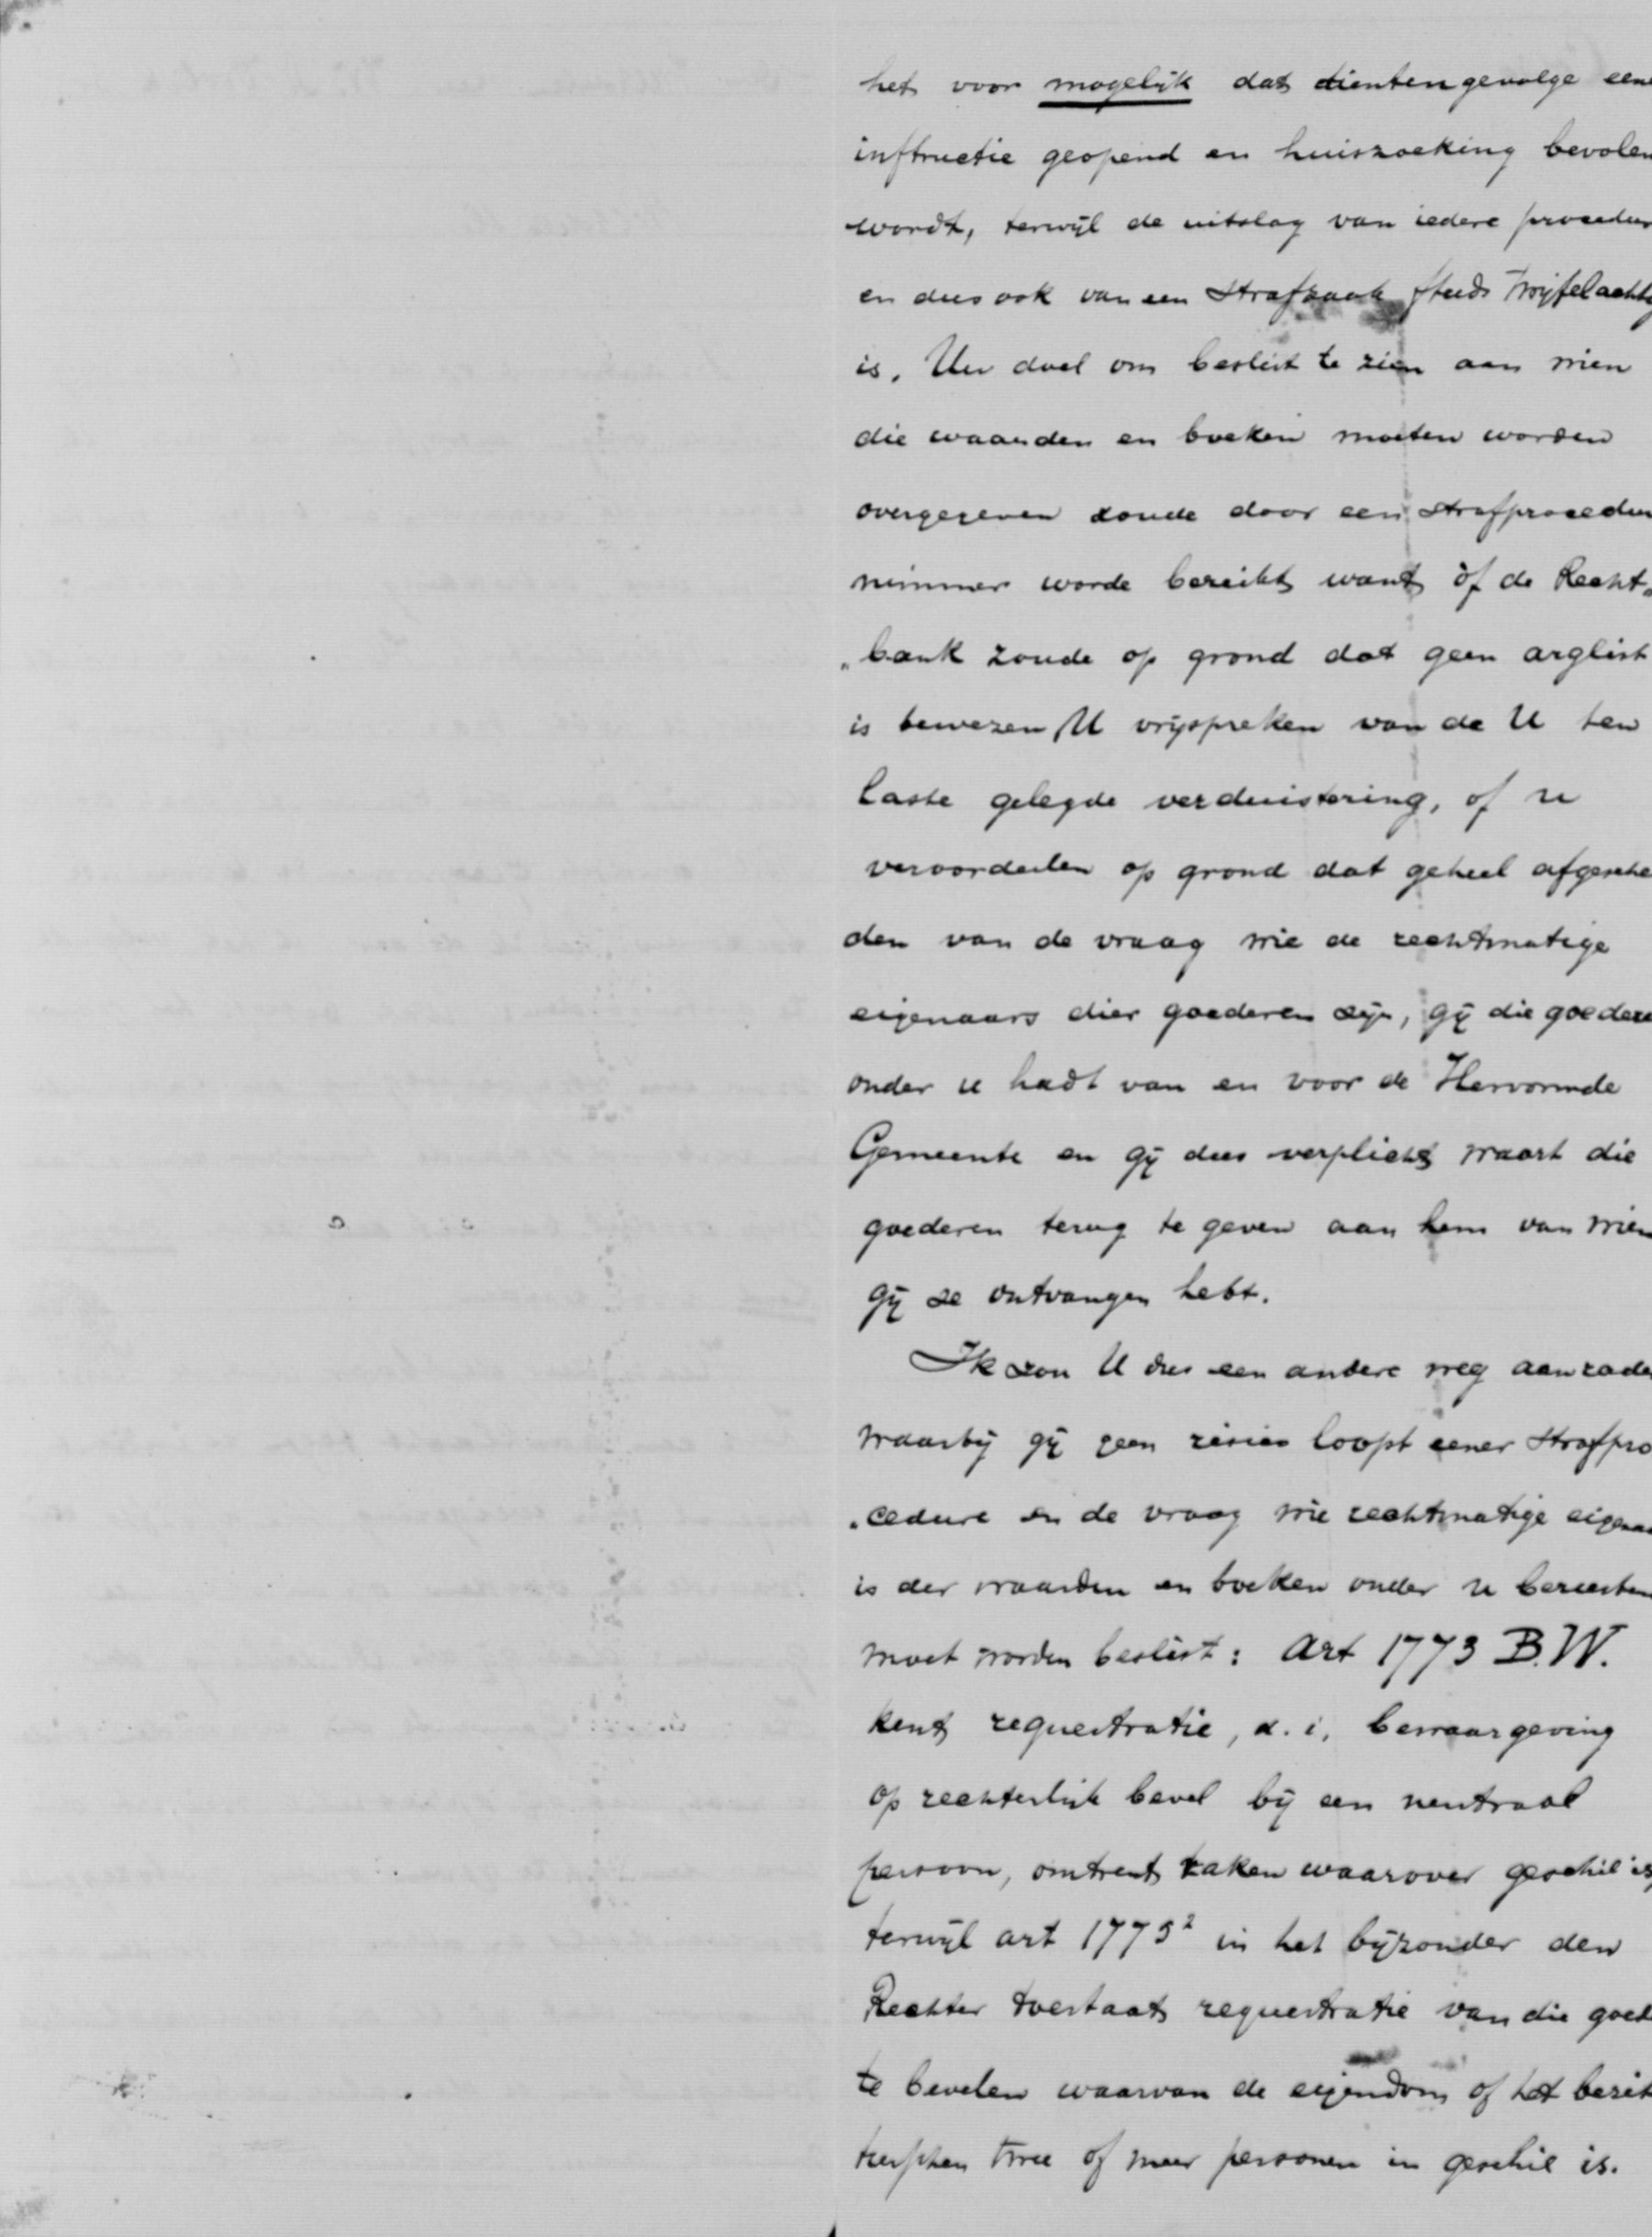 het voor mogelijk dat dientengevolge een
instructie geopend en huiszoeking bevolen
wordt, terwijl de uitslag van iedere procedur
en dus ook van een Strafzaak steeds Twijfelachtig
is. Uw doel om beslist te zien aan wien
die waarden en boeken moeten worden
overgegeven zoude door een strafprocedur
nimmer worde bereikt want òf de Recht„
„bank zoude op grond dat geen arglist
is bewezen U vrijspreken van de U ten
laste gelegde verduistering, of u
veroordeelen op grond dat geheel afgesche
den van de vraag wie de rechtmatige
eigenaars dier goederen zijn, gij die goedere
onder u hadt van en voor de Hervormde
Gemeente en gij dus verplicht waart die
goederen terug te geven aan hem van wien
gij ze ontvangen hebt.
Ik zou U dus een andere weg aanrade
waarbij gij geen risico loopt eener strafpro
„cedure en de vraag wie rechtmatige eigenaa
is der waarden en boeken onder u berusten
moet worden beslist: Art 1773 B.W.
kent sequestratie, d.i. bewaargeving
op rechterlijk bevel bij een neutraal
persoon, omtrent zaken waarover geschil is,
terwijl art 1775² in het bijzonder den
Rechter toestaat sequestratie van die goed
te bevelen waarvan de eigendom of het bezit
tusschen twee of meer personen in geschil is.